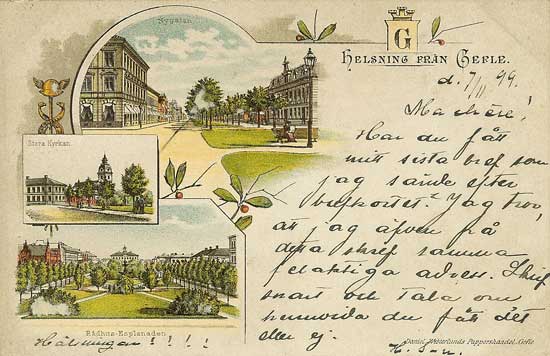 Nygatan
G
HELSNING FRÅN GEFLE.
d. 7/11 99.
Ma chère!
Har du fått
mitt sista bref som
jag sände efter
brefkortet? Jag tror,
att jag äfven på
detta skref samma
felaktiga adress. Skrif
snart och tala om
huruvida du fått det
eller ej.
Stora Kyrkan.
Rådhus-Esplanaden
Daniel Westerlunds Pappershandel, Gefle.
Hälsningar! ! ! !